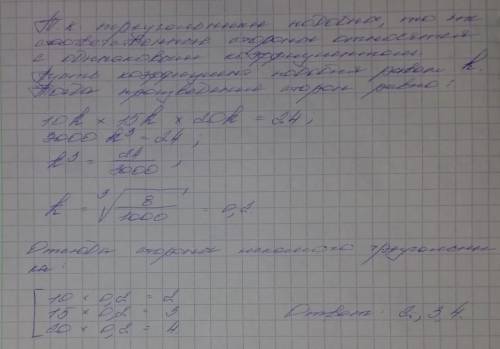 Т. к. треугольники подобны, то их
соответственные стороны относятся
с одинаковым коэффициентом.
Пусть коэффициент подобия равен k.
Тогда произведение сторон равно:
10k × 15k × 20k = 24;
3000 k³ = 24;
k³ = 24/3000;
k = ³√8/1000 = 0,2
Отсюда стороны искомого треугольни
ка:
10 × 0,2 = 2
15 × 0,2 = 3
20 × 0,2 = 4
Ответ: 2, 3, 4.